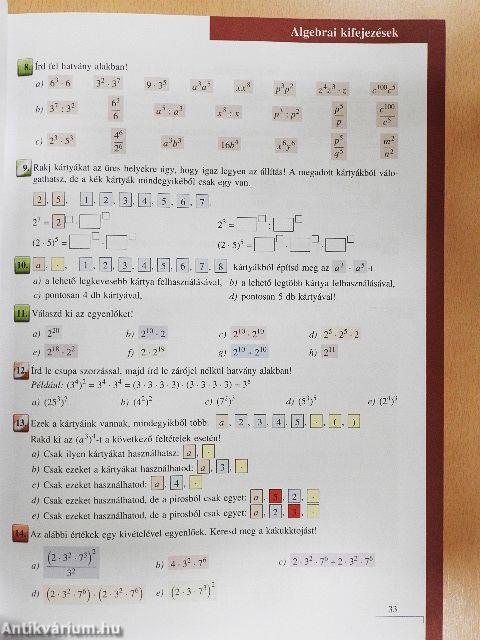 Algebrai kifejezések
8. Írd fel hatvány alakban!
a) 6³ · 6 3² · 3⁷ 9 · 3⁵ a³a⁵ xx⁸ p³p² z⁴z³ · z c¹⁰⁰c⁵
b) 3⁷ : 3² 6³/6 a⁵ : a³ x⁸ : x p³ : p² p⁵/p c¹⁰⁰/c⁵
c) 2³ · 5³ 4⁶/2⁶ a³b³ 16b⁴ x⁶y⁶ p⁵/q⁵ m²/n²
9. Rakj kártyákat az üres helyekre úgy, hogy igaz legyen az állítás! A megadott kártyákból válo-
gathatsz, de a kék kártyák mindegyikéből csak egy van.
2, 5, 1, 2, 3, 4, 5, 6, 7.
2⁷ = 2 · 2³ = :
(2 · 5)⁵ = · (2 · 5)³ = · ·
10. a, ·, 1, 2, 3, 4, 5, 6, 7, 8 kártyákból építsd meg az a³ · a⁵-t
a) a lehető legkevesebb kártya felhasználásával, b) a lehető legtöbb kártya felhasználásával,
c) pontosan 4 db kártyával, d) pontosan 5 db kártyával!
11. Válaszd ki az egyenlőket!
a) 2²⁰ b) 2¹⁰ · 2 c) 2¹⁰ · 2¹⁰ d) 2⁵ · 2⁵ · 2
e) 2¹⁸ · 2² f) 2 · 2¹⁹ g) 2¹⁰ + 2¹⁰ h) 2¹¹
12. Írd le csupa szorzással, majd írd le zárójel nélkül hatvány alakban!
Például: (3⁴)² = 3⁴ · 3⁴ = (3 · 3 · 3 · 3) · (3 · 3 · 3 · 3) = 3⁸
a) (25³)² b) (4²)² c) (7²)³ d) (5³)⁵ e) (2⁴)³
13. Ezek a kártyáink vannak, mindegyikből több. a, 2, 3, 4, 5, ·, (, )
Rakd ki az (a³)⁴-t a következő feltételek esetén!
a) Csak ilyen kártyákat használhatsz: a, ·
b) Csak ezeket a kártyákat használhatod: a, 3, ·
c) Csak ezeket használhatod: a, 4, ·
d) Csak ezeket használhatod, de a pirosból csak egyet: a, 5, 2, ·
e) Csak ezeket használhatod, de a pirosból csak egyet: a, 2, 3, ·
14. Az alábbi értékek egy kivételével egyenlőek. Keresd meg a kakukktojást!
a) (2 · 3² · 7³)²/3² b) 4 · 3² · 7⁶ c) 2 · 3² · 7⁶ + 2 · 3² · 7⁶
d) (2 · 3² · 7⁶) · (2 · 3² · 7⁶) e) (2 · 3 · 7³)²
33
Antikvárium.hu